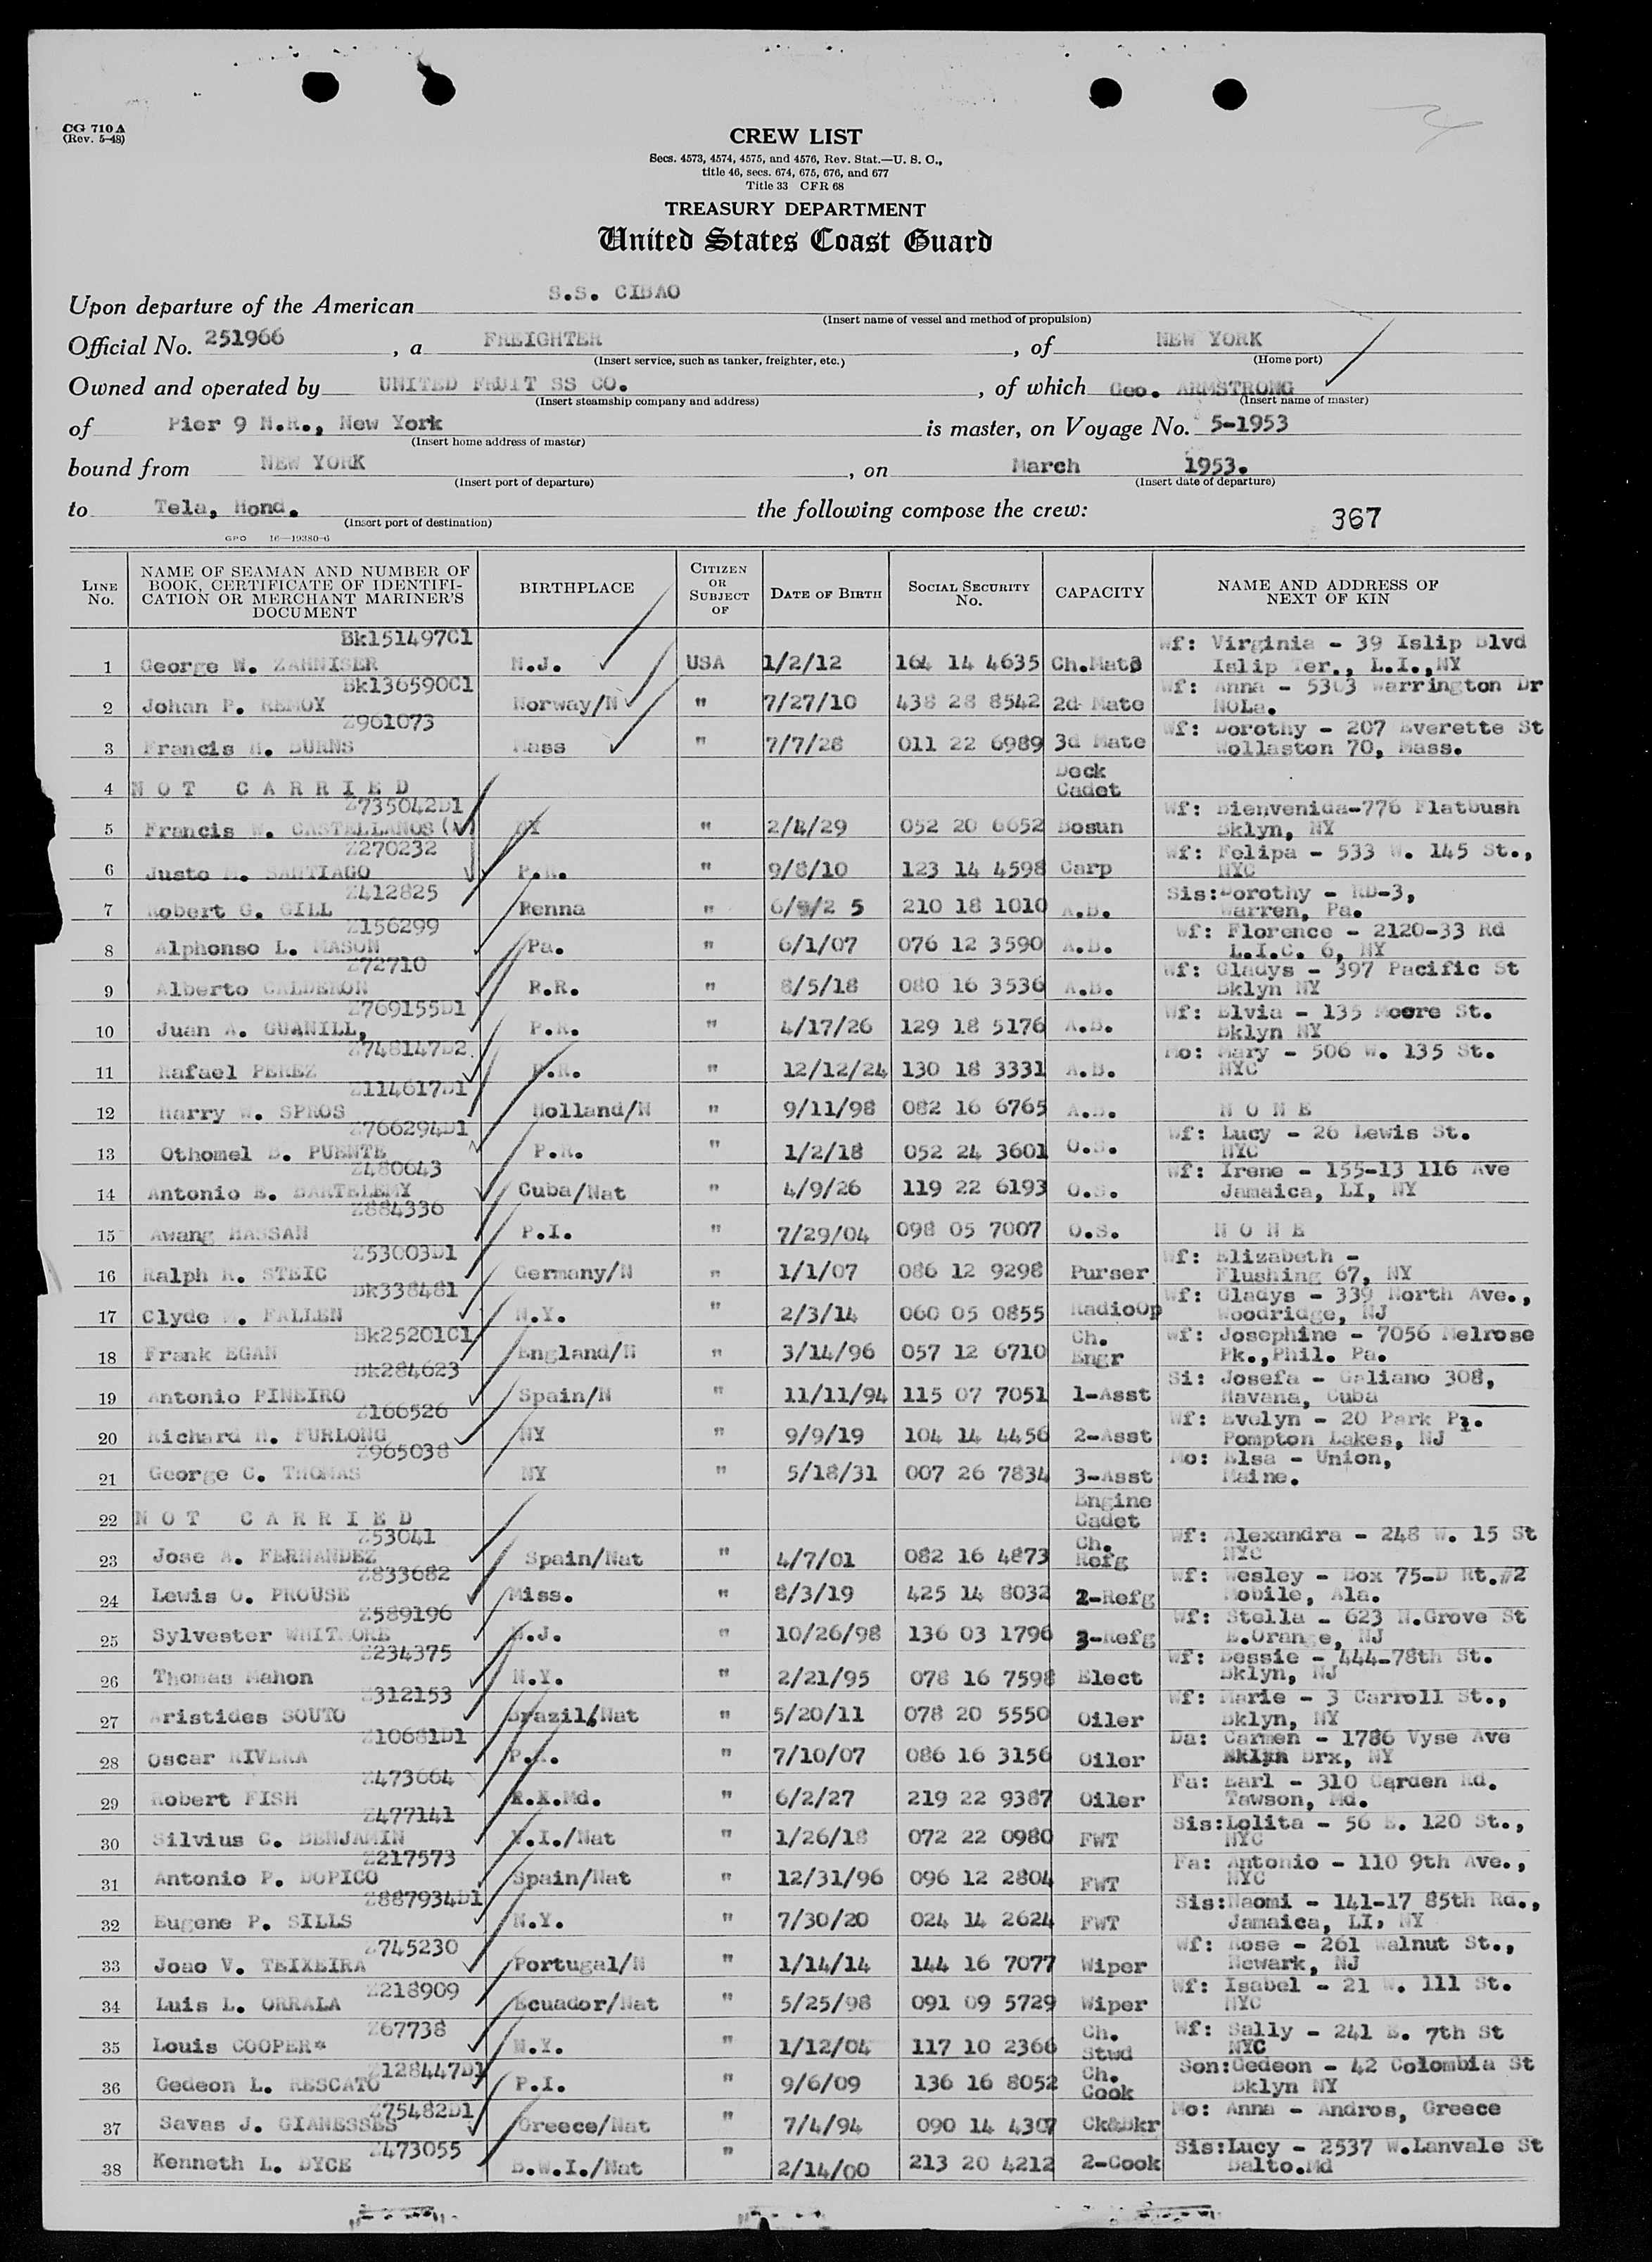 CG 710 A
(Rev. 5-48)
CREW LIST
Secs. 4573, 4574, 4575, and 4576, Rev. Stat.—U. S. C.,
title 46, secs. 674, 675, 676, and 677
Title 33 CFR 68
TREASURY DEPARTMENT
United States Coast Guard
Upon departure of the American S.S. CIBAO
(Insert name of vessel and method of propulsion)
Official No. 251966 , a FREIGHTER , of NEW YORK
(Insert service, such as tanker, freighter, etc.) (Home port)
Owned and operated by UNITED FRUIT SS CO. , of which Geo. ARMSTRONG
(Insert steamship company and address) (Insert name of master)
of Pier 9 N.R., New York is master, on Voyage No. 5-1953
(Insert home address of master)
bound from NEW YORK , on March 1953.
(Insert port of departure) (Insert date of departure)
to Tela, Hond. the following compose the crew: 367
(Insert port of destination)
GPO 16—19380-6
LINE No. NAME OF SEAMAN AND NUMBER OF BOOK, CERTIFICATE OF IDENTIFICATION OR MERCHANT MARINER'S DOCUMENT BIRTHPLACE CITIZEN OR SUBJECT OF DATE OF BIRTH SOCIAL SECURITY No. CAPACITY NAME AND ADDRESS OF NEXT OF KIN
Bk151497C1 Wf: Virginia - 39 Islip Blvd
1 George W. ZAHNISER N.J. USA 1/2/12 164 14 4635 Ch.Mate Islip Ter., L.I.,NY
Bk136590C1 Wf: Anna - 5303 Warrington Dr
2 Johan P. REMOY Norway/N " 7/27/10 438 28 8542 2d Mate NOLa.
Z961073 Wf: Dorothy - 207 Everette St
3 Francis H. BURNS Mass " 7/7/28 011 22 6989 3d Mate Wollaston 70, Mass.
Deck
4 NOT CARRIED Cadet
Z735042D1 Wf: Bienvenida-776 Flatbush
5 Francis W. CASTELLANOS NY " 2/4/29 052 20 6652 Bosun Bklyn, NY
Z270232 Wf: Felipa - 533 W. 145 St.,
6 Justo M. SANTIAGO P.R. " 9/8/10 123 14 4598 Carp NYC
Z412825 Sis:Dorothy - RD-3,
7 Robert G. GILL Penna " 6/9/2 5 210 18 1010 A.B. Warren, Pa.
Z156299 Wf: Florence - 2120-33 Rd
8 Alphonso L. MASON Pa. " 6/1/07 076 12 3590 A.B. L.I.C. 6, NY
Z72710 Wf: Gladys - 397 Pacific St
9 Alberto CALDERON P.R. " 8/5/18 080 16 3536 A.B. Bklyn NY
Z769155D1 Wf: Elvia - 135 Moore St.
10 Juan A. GUANILL, P.R. " 4/17/26 129 18 5176 A.B. Bklyn NY
Z748147D2 Mo: Mary - 506 W. 135 St.
11 Rafael PEREZ P.R. " 12/12/24 130 18 3331 A.B. NYC
Z114617D1
12 Harry W. SPROS Holland/N " 9/11/98 082 16 6765 A.B. NONE
Z766294D1 Wf: Lucy - 26 Lewis St.
13 Othomel B. PUENTE P.R. " 1/2/18 052 24 3601 O.S. NYC
Z480643 Wf: Irene - 155-13 116 Ave
14 Antonio E. BARTELEMY Cuba/Nat " 4/9/26 119 22 6193 O.S. Jamaica, LI, NY
Z884336
15 Awang HASSAN P.I. " 7/29/04 098 05 7007 O.S. NONE
Z53003D1 Wf: Elizabeth -
16 Ralph R. STEIC Germany/N " 1/1/07 086 12 9298 Purser Flushing 67, NY
Bk338481 Wf: Gladys - 339 North Ave.,
17 Clyde M. FALLEN N.Y. " 2/3/14 060 05 0855 RadioOp Woodridge, NJ
Bk25201C1 Ch. Wf: Josephine - 7056 Melrose
18 Frank EGAN England/N " 3/14/96 057 12 6710 Engr Pk.,Phil. Pa.
Bk284623 Si: Josefa - Galiano 308,
19 Antonio PINEIRO Spain/N " 11/11/94 115 07 7051 1-Asst Havana, Cuba
Z166526 Wf: Evelyn - 20 Park Pl.
20 Richard H. FURLONG NY " 9/9/19 104 14 4456 2-Asst Pompton Lakes, NJ
Z965038 Mo: Elsa - Union,
21 George C. THOMAS NY " 5/18/31 007 26 7834 3-Asst Maine.
Engine
22 NOT CARRIED Cadet
Z53041 Ch. Wf: Alexandra - 248 W. 15 St
23 Jose A. FERNANDEZ Spain/Nat " 4/7/01 082 16 4873 Refg NYC
Z833682 Wf: Wesley - Box 75-D Rt.#2
24 Lewis O. PROUSE Miss. " 8/3/19 425 14 8032 2-Refg Mobile, Ala.
Z589196 Wf: Stella - 623 N.Grove St
25 Sylvester WHITMORE N.J. " 10/26/98 136 03 1796 3-Refg E.Orange, NJ
Z234375 Wf: Bessie - 444-78th St.
26 Thomas Mahon N.Y. " 2/21/95 078 16 7598 Elect Bklyn, NJ
Z312153 Wf: Marie - 3 Carroll St.,
27 Aristides SOUTO Brazil/Nat " 5/20/11 078 20 5550 Oiler Bklyn, NY
Z10681D1 Da: Carmen - 1786 Vyse Ave
28 Oscar RIVERA P.R. " 7/10/07 086 16 3156 Oiler Brx, NY
Z473664 Fa: Earl - 310 Garden Rd.
29 Robert FISH Md. " 6/2/27 219 22 9387 Oiler Tawson, Md.
Z477141 Sis:Lolita - 56 E. 120 St.,
30 Silvius C. BENJAMIN V.I./Nat " 1/26/18 072 22 0980 FWT NYC
Z217573 Fa: Antonio - 110 9th Ave.,
31 Antonio P. DOPICO Spain/Nat " 12/31/96 096 12 2804 FWT NYC
Z887934D1 Sis:Naomi - 141-17 85th Rd.,
32 Eugene P. SILLS N.Y. " 7/30/20 024 14 2624 FWT Jamaica, LI, NY
Z745230 Wf: Rose - 261 Walnut St.,
33 Joao V. TEIXEIRA Portugal/N " 1/14/14 144 16 7077 Wiper Newark, NJ
Z218909 Wf: Isabel - 21 W. 111 St.
34 Luis L. ORRALA Ecuador/Nat " 5/25/98 091 09 5729 Wiper NYC
Z67738 Ch. Wf: Sally - 241 E. 7th St
35 Louis COOPER* N.Y. " 1/12/04 117 10 2366 Stwd NYC
Z128447D1 Ch. Son:Gedeon - 42 Colombia St
36 Gedeon L. RESCATO P.I. " 9/6/09 136 16 8052 Cook Bklyn NY
Z75482D1 Mo: Anna - Andros, Greece
37 Savas J. GIANESSES Greece/Nat " 7/4/94 090 14 4307 Ck&Bkr
Z473055 Sis:Lucy - 2537 W.Lanvale St
38 Kenneth L. DYCE B.W.I./Nat " 2/14/00 213 20 4212 2-Cook Balto.Md